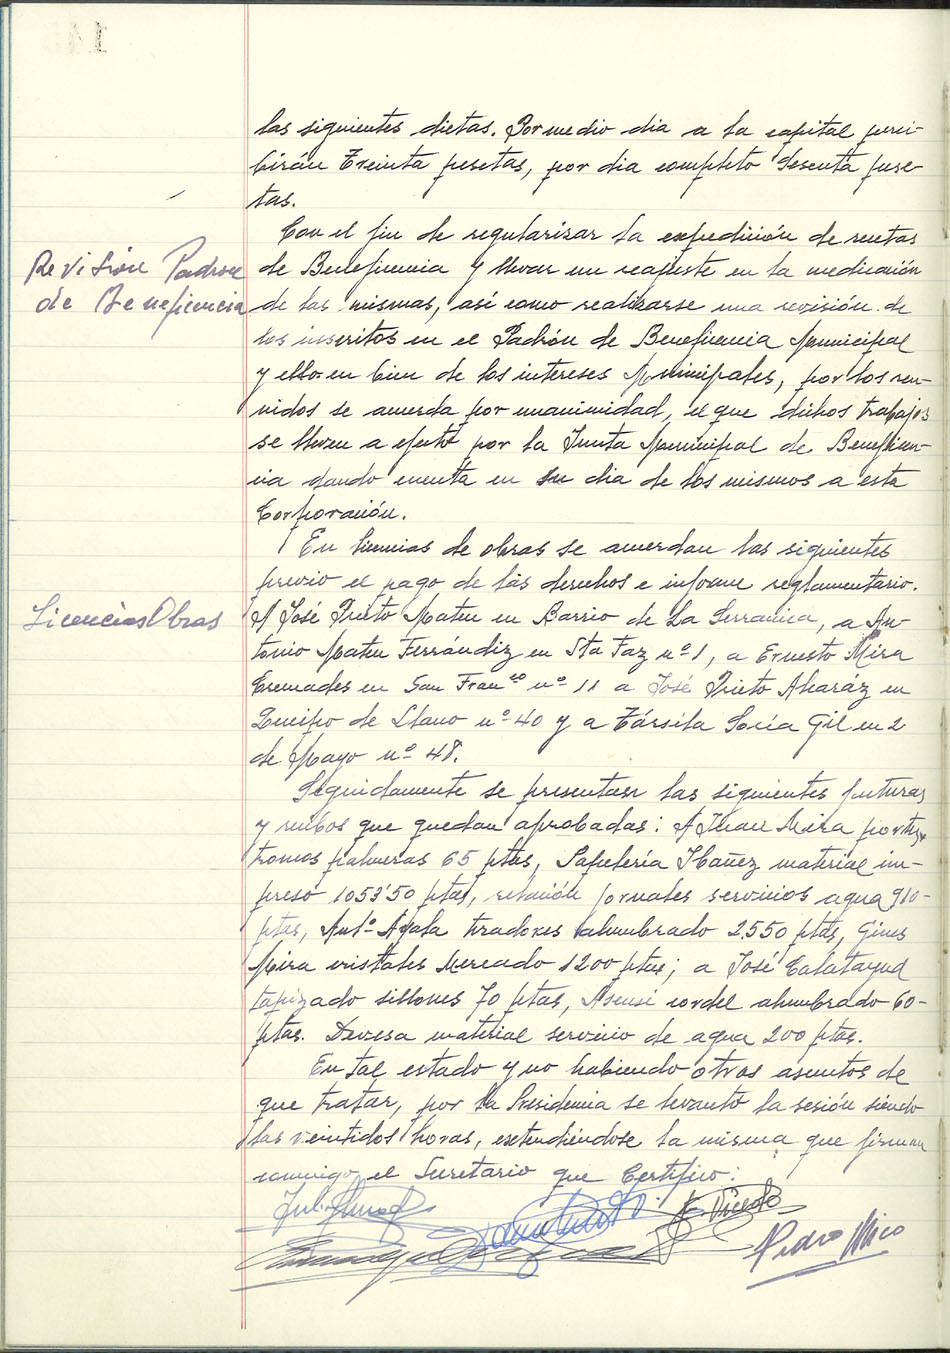 las siguientes dietas. Por medio dia a la capital perci-
birán treinta pesetas, por dia completo sesenta pese-
tas.
Con el fin de regularizar la expedición de recetas
Revisión Padron
de Beneficencia y llevar un reajuste en la medicación
de Beneficencia
de las mismas, así como realizarse una revisión de
los inscritos en el Padrón de Beneficencia Municipal
y ello en bien de los intereses Municipales, por los reu-
nidos se acuerda por unanimidad, el que dichos trabajos
se lleven a efecto por la Junta Municipal de Beneficen-
cia dando cuenta en su dia de los mismos a esta
Corporación.
En licencias de obras se acuerdan las siguientes
previo el pago de los derechos e informe reglamentario.
Licencias Obras
A José Prieto Mateu en Barrio de La Serranica, a An-
tonio Mateu Ferrándiz en Sta Faz nº 1, a Ernesto Mira
Cremades en San Franco nº 11 a José Prieto Alcaráz en
Obispo de Llano nº 40 y a Társila Soria Gil en 2
de Mayo nº 48.
Seguidamente se presentan las siguientes facturas
y recibos que quedan aprobadas: A Juan Mira por
troncos palmeras 65 ptas, Papelería Ibañez material im-
preso 1053'50 ptas, relación jornales servicios agua 910-
ptas, Antº Ayala tiradores alumbrado 2.550 ptas, Gines
Mira cristales Mercado 1200 ptas; a José Calatayud
tapizado sillones 70 ptas, Asensi cordel alumbrado 60-
ptas. Devesa material servicio de agua 200 ptas.
En tal estado y no habiendo otros asuntos de
que tratar, por la Presidencia se levantó la sesión siendo
las veintidos horas, extendiéndose la misma que firman
conmigo, el Secretario que Certifico:
Vicedo
Pedro Mico